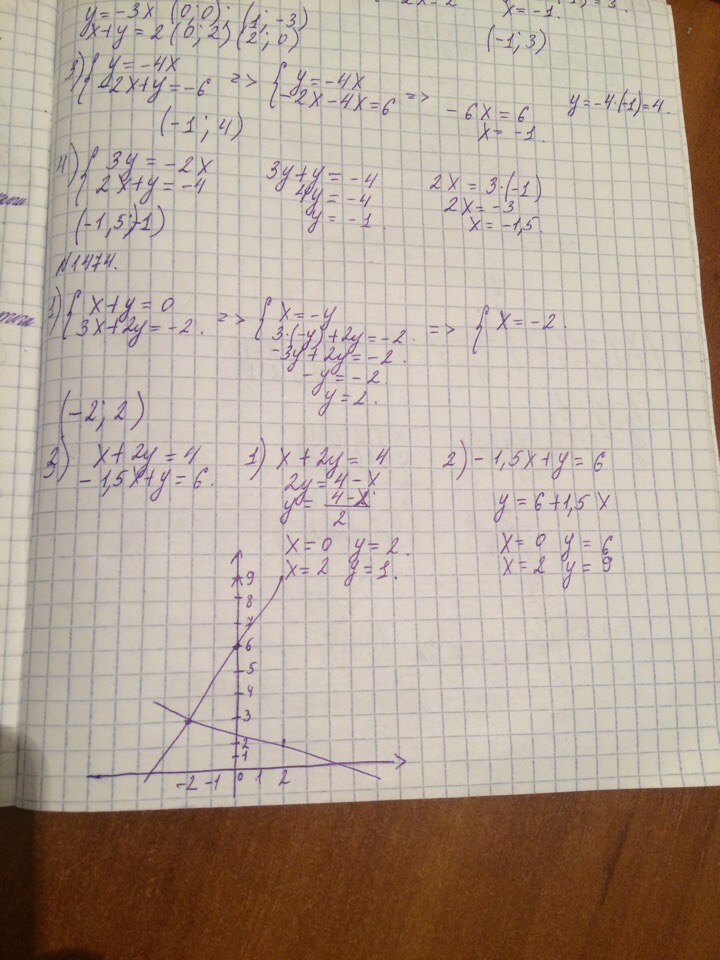 y=-3x (0;0); (1;-3)
x+y=2 (0;2) (2;0)
x=-1.
(-1;3)
3) { y=-4x
-2x+y=-6
=> { y=-4x
-2x-4x=6 =>
-6x=6
x=-1.
y=-4·(-1)=4.
(-1;4)
4) { 3y=-2x
2x+y=-4
3y+y=-4
4y=-4
y=-1.
2x=3·(-1)
2x=-3
x=-1,5.
(-1,5;-1)
№1474.
1) { x+y=0
3x+2y=-2.
=> { x=-y
3·(-y)+2y=-2.
-3y+2y=-2.
-y=-2.
y=2.
=> { x=-2.
(-2;2)
3) x+2y=4
-1,5x+y=6.
1) x+2y=4
2y=4-x
y=4-x
2
x=0 y=2.
x=2 y=1.
2) -1,5x+y=6
y=6+1,5x
x=0 y=6
x=2 y=9
9
8
7
6
5
4
3
2
1
-2 -1 0 1 2